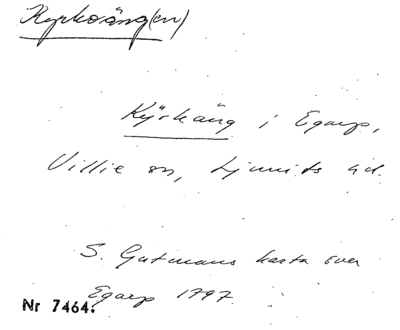 Kyrkoäng(en)
Kyrkäng i Egarp,
Villie sn, Ljunits hd.
S. Gutmans karta över
Egarp 1797.
Nr 7464.